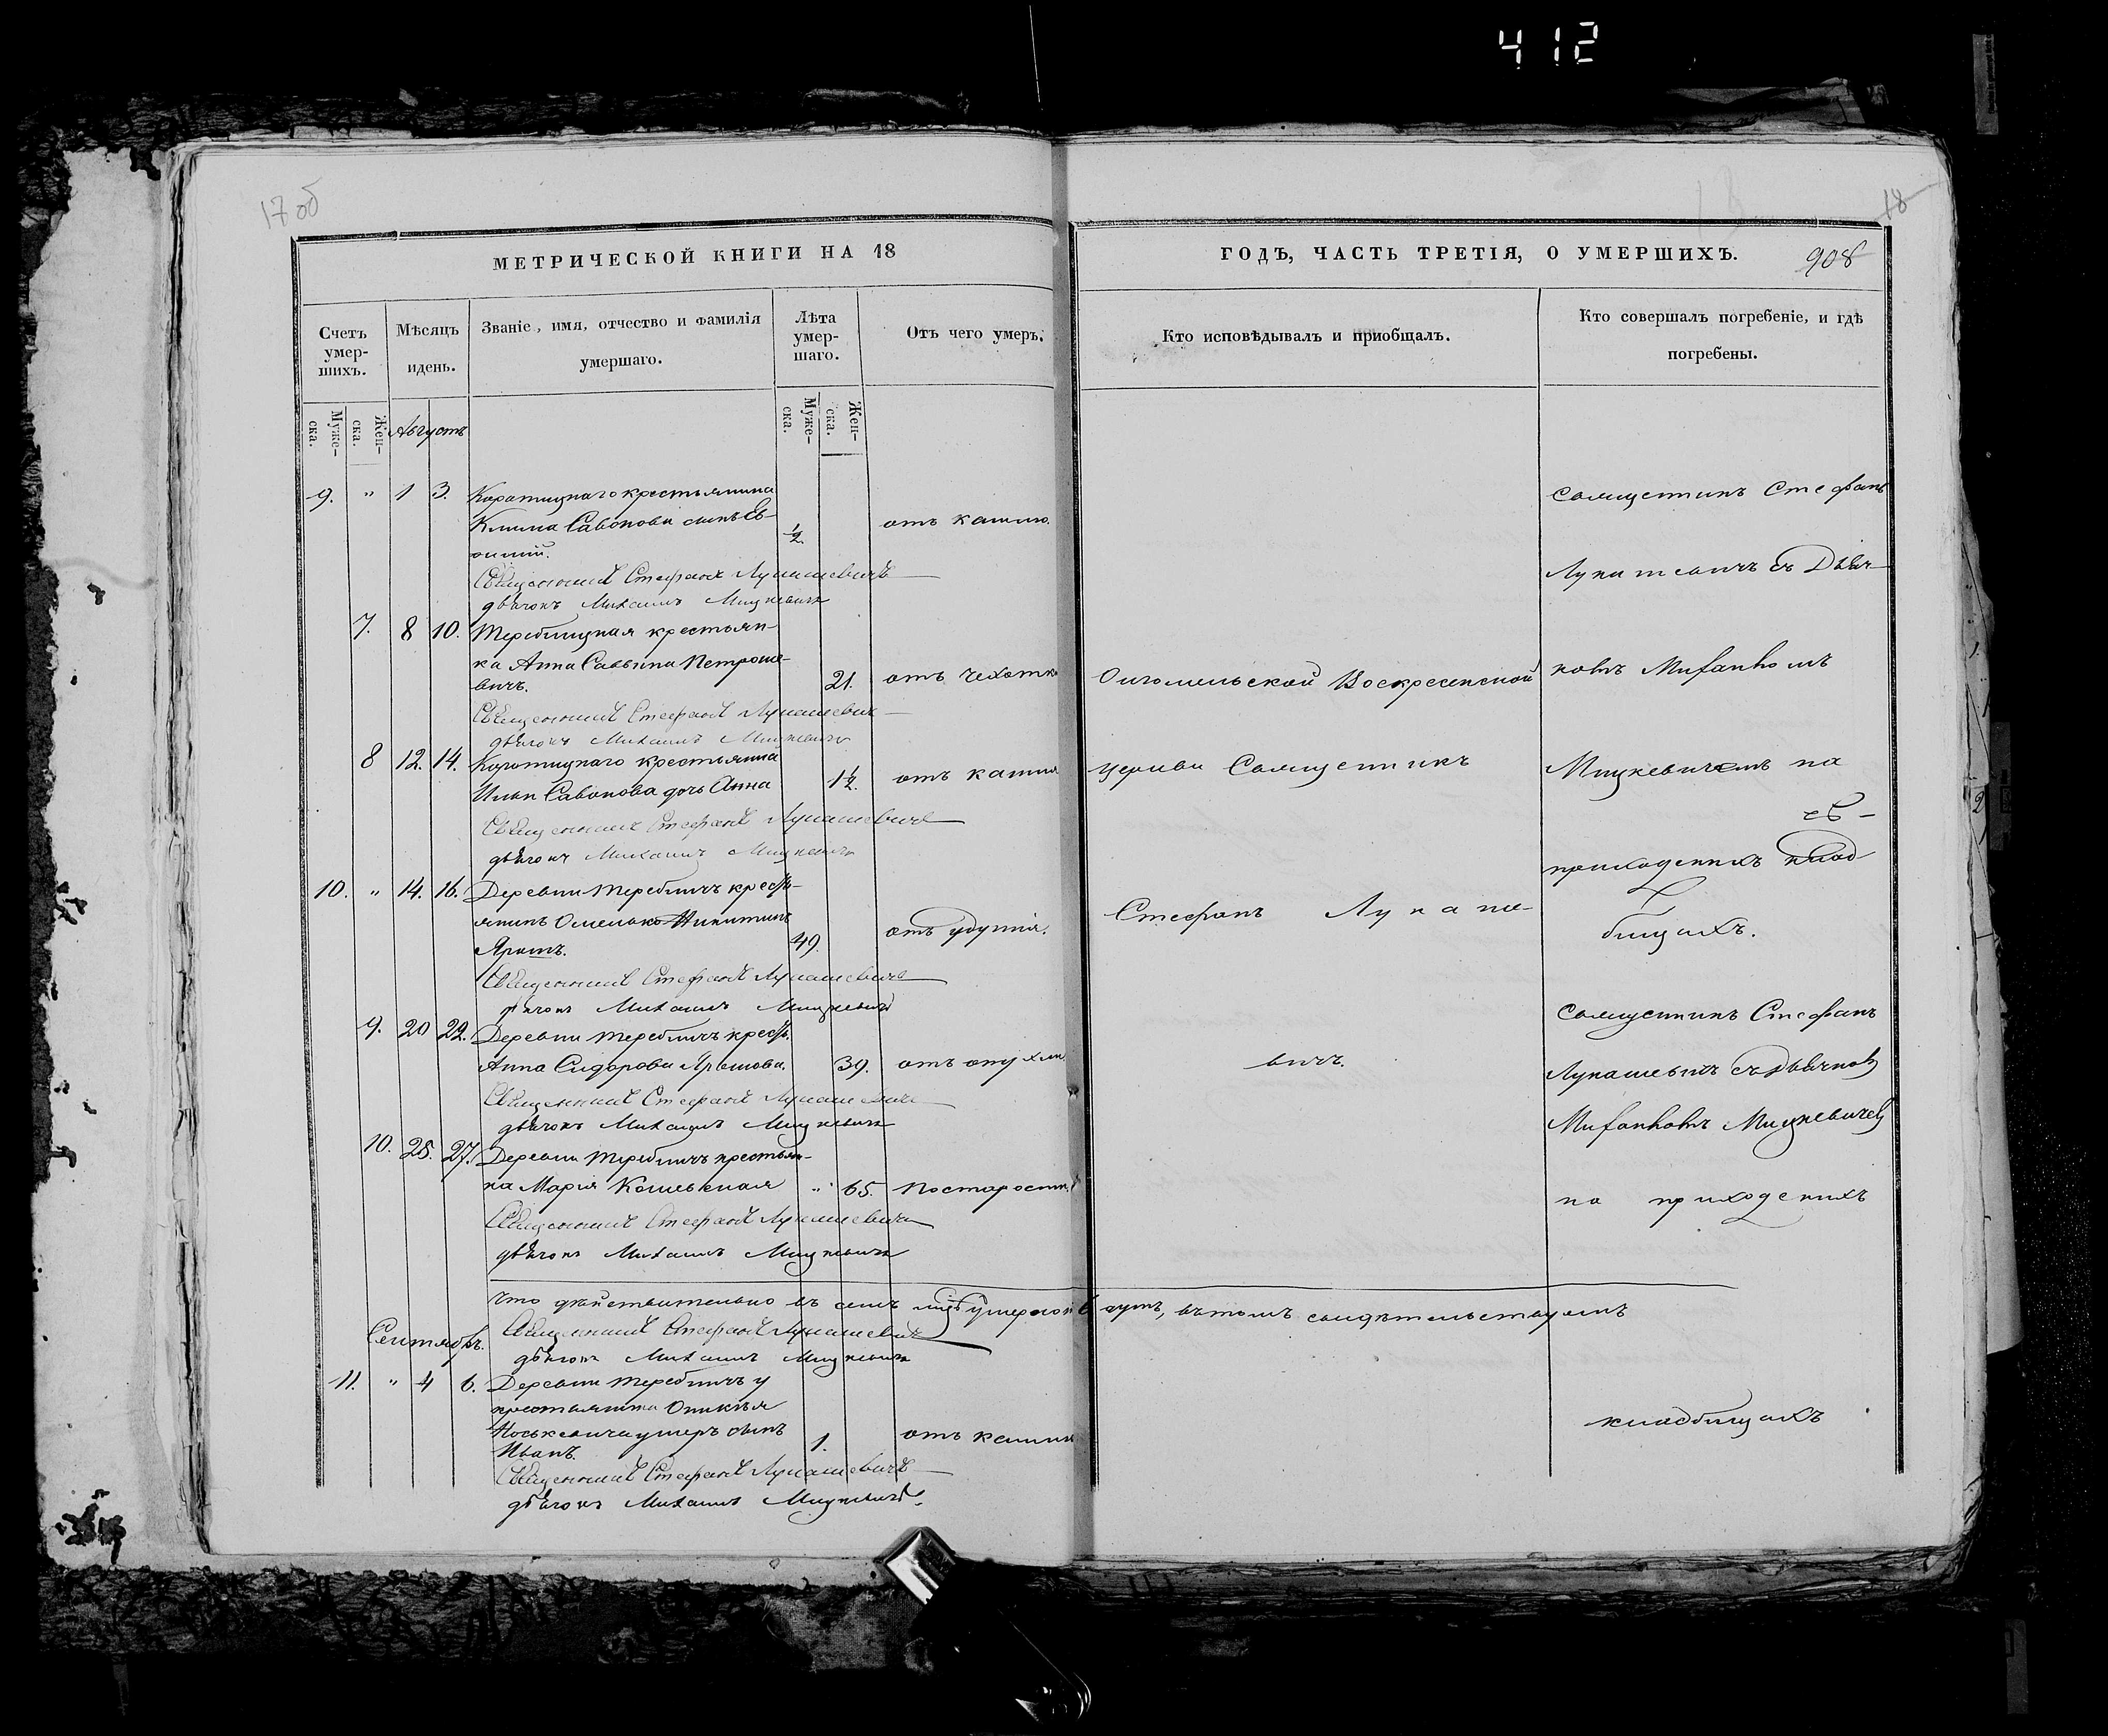 412
17 об
18
МЕТРИЧЕСКОЙ КНИГИ НА 18
ГОДЪ, ЧАСТЬ ТРЕТІЯ, О УМЕРШИХЪ.
908
Счетъ умер-шихъ.
Мѣсяцъ идень.
Званіе, имя, отчество и фамилія умершаго.
Лѣта умер-шаго.
Отъ чего умеръ.
Кто исповѣдывалъ и приобщалъ.
Кто совершалъ погребеніе, и гдѣ погребены.
Муже-ска.
Жен-ска.
Муже-ска.
Жен-ска.
Августъ
9. " 1 3. Коротицкаго крестьянина
Клима Савонова сынъ Ев-
½. отъ кашлю.
Священникъ Стефанъ Лукашевичъ
дьячокъ Михаилъ Мицкевичъ
7. 8 10. Теребицкая крестьян-
ка Анна Саввина Петроше-
вичъ. 21. отъ чехотки
Священникъ Стефанъ Лукашевичъ
дьячокъ Михаилъ Мицкевичъ
8 12. 14. Коротицкаго крестьянина
Ильи Савонова дочь Анна 1½. отъ кашля
Священникъ Стефанъ Лукашевичъ
дьячокъ Михаилъ Мицкевичъ
10. " 14. 16. Деревни Теребличъ кресть-
янинъ Омелько Никитинъ
49. отъ удушія.
Священникъ Стефанъ Лукашевичъ
дьячокъ Михаилъ Мицкевичъ
9. 20 22. Деревни Теребличъ кресть.
Анна Сидорова 39. отъ опухли
Священникъ Стефанъ Лукашевичъ
дьячокъ Михаилъ Мицкевичъ
10. 25. 27. Деревни Теребличъ крестьян-
ка Марія " 65. По старости
Священникъ Стефанъ Лукашевичъ
дьячокъ Михаилъ Мицкевичъ
Что дѣйствительно въ семъ въ томъ свидѣтельствуемъ
Священникъ Стефанъ Лукашевичъ
Сентябрь.
дьячокъ Михаилъ Мицкевичъ
11. " 4 6. Деревни Теребличъ у
крестьянина
Носькевича умеръ сынъ
Иванъ. 1. отъ кашля
Священникъ Стефанъ Лукашевичъ
дьячокъ Михаилъ Мицкевичъ.
Воскресенской
церкви Священникъ
Стефанъ Лукаше-
вичъ.
Священникъ Стефанъ
Лукашевичъ съ Дьяч-
комъ Михаиломъ
Мицкевичемъ на
приходскихъ клад-
бищахъ.
Священникъ Стефанъ
Лукашевичъ съ Дьячкомъ
Михаиломъ Мицкевичемъ
на приходскихъ
кладбищахъ